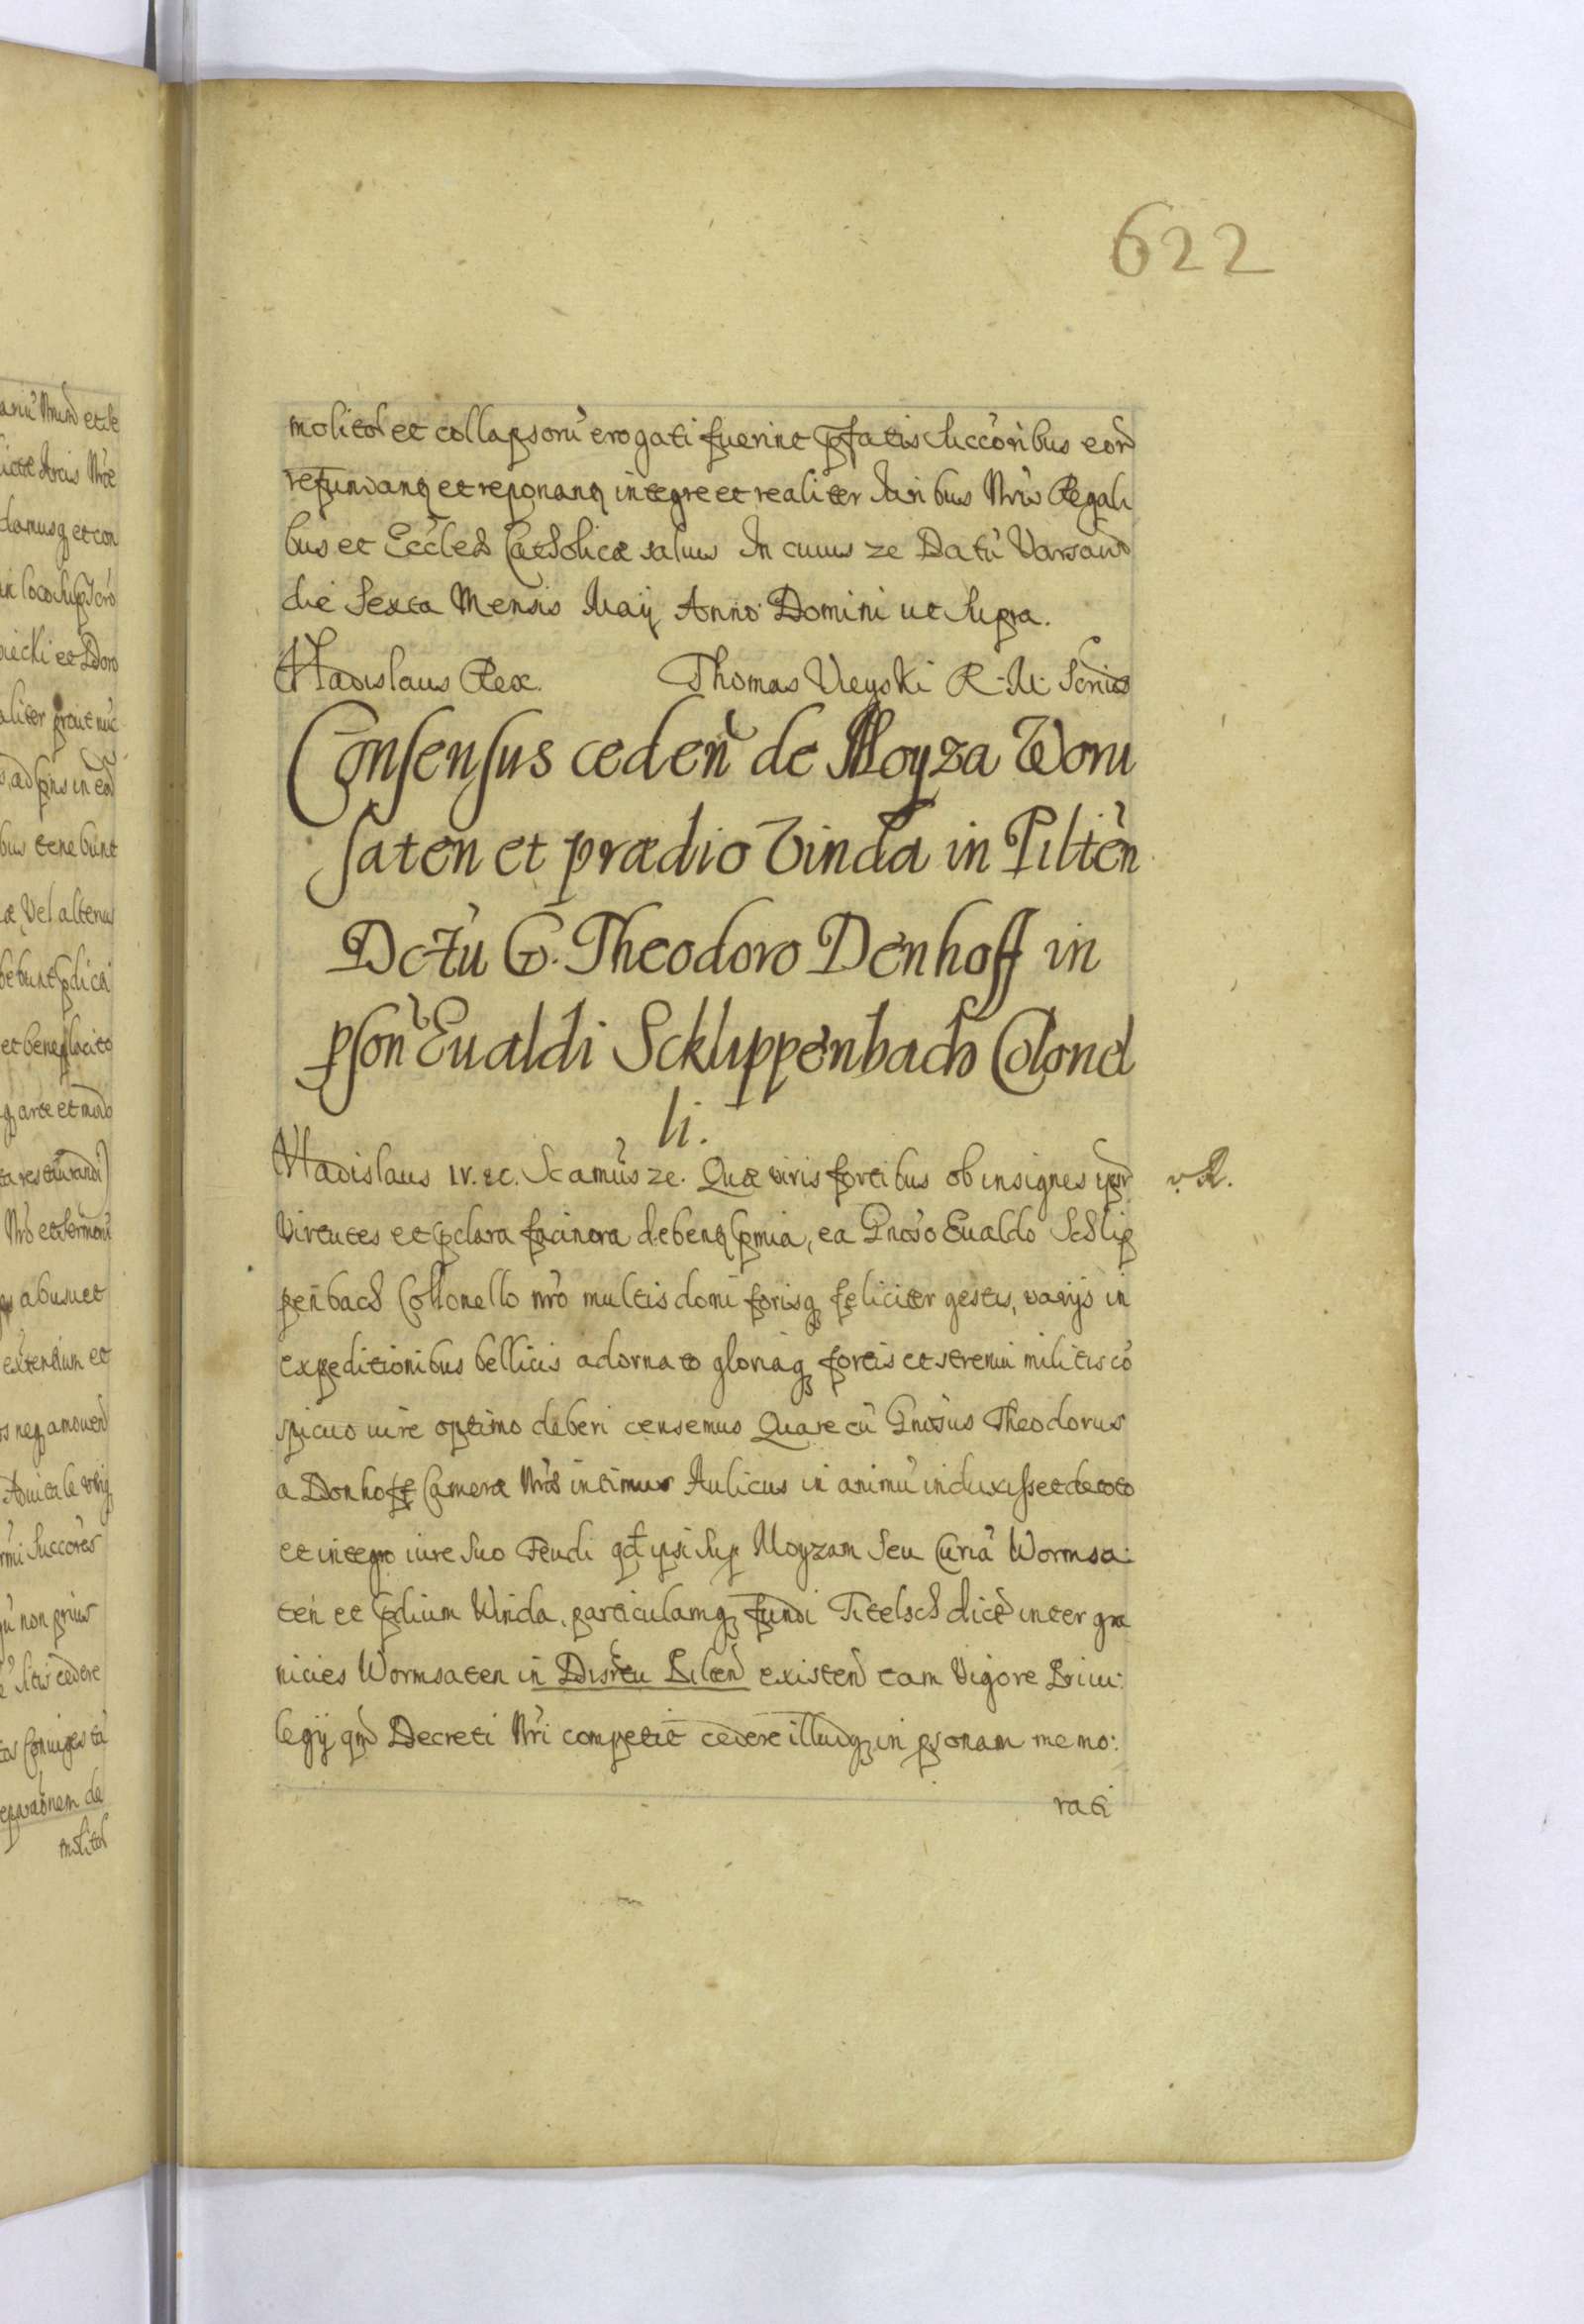 622
molitor et collapsorũ erogati fuerint pfatis succoribus eor
refundanq et reponanq integre et realiter Iuribus Nris Regali
bus et Eccles Catholicæ saluis In cuius ze Datũ Varsauiæ
die Sexta Mensis Maij Anno Domini ut supra.
Vladislaus Rex. Thomas Vieyski R. M. Scrius
Consensus ceden de Moyza Worm
saten et prædio Vinda in Pilten
Dctũ G. Theodoro Denhoff in
pson Eualdi Schlippenbach Colonel
li.
Vladislaus IV. &c. Scamus ze. Quæ viris fortibus ob insignes ipsor
v. R.
Virtutes et pclara facinora debenq pmia, ea Gnoso Eualdo Schlip
penbach Collonello nro multis domi forisq feliciter gestis, varijs in
expeditionibus bellicis adornato gloriaq fortis et strenui militis cõ
spicuo iure optimo deberi censemus Quare cũ Gnosus Theodorus
a Donhoff Cameræ Nræ intimus Aulicus in animũ induxisset de toto
et integro iure suo Feudi qd ipsi sup Moyzam seu Curiã Wormsa:
ten et pdium Winda, particulamq fundi Titelsch dict inter gra
nicies Wormsaten in Disrtu Pilten existen tam Vigore Priui:
legij qm Decreti Nri competit cedere illudq in psonam memo:
rati